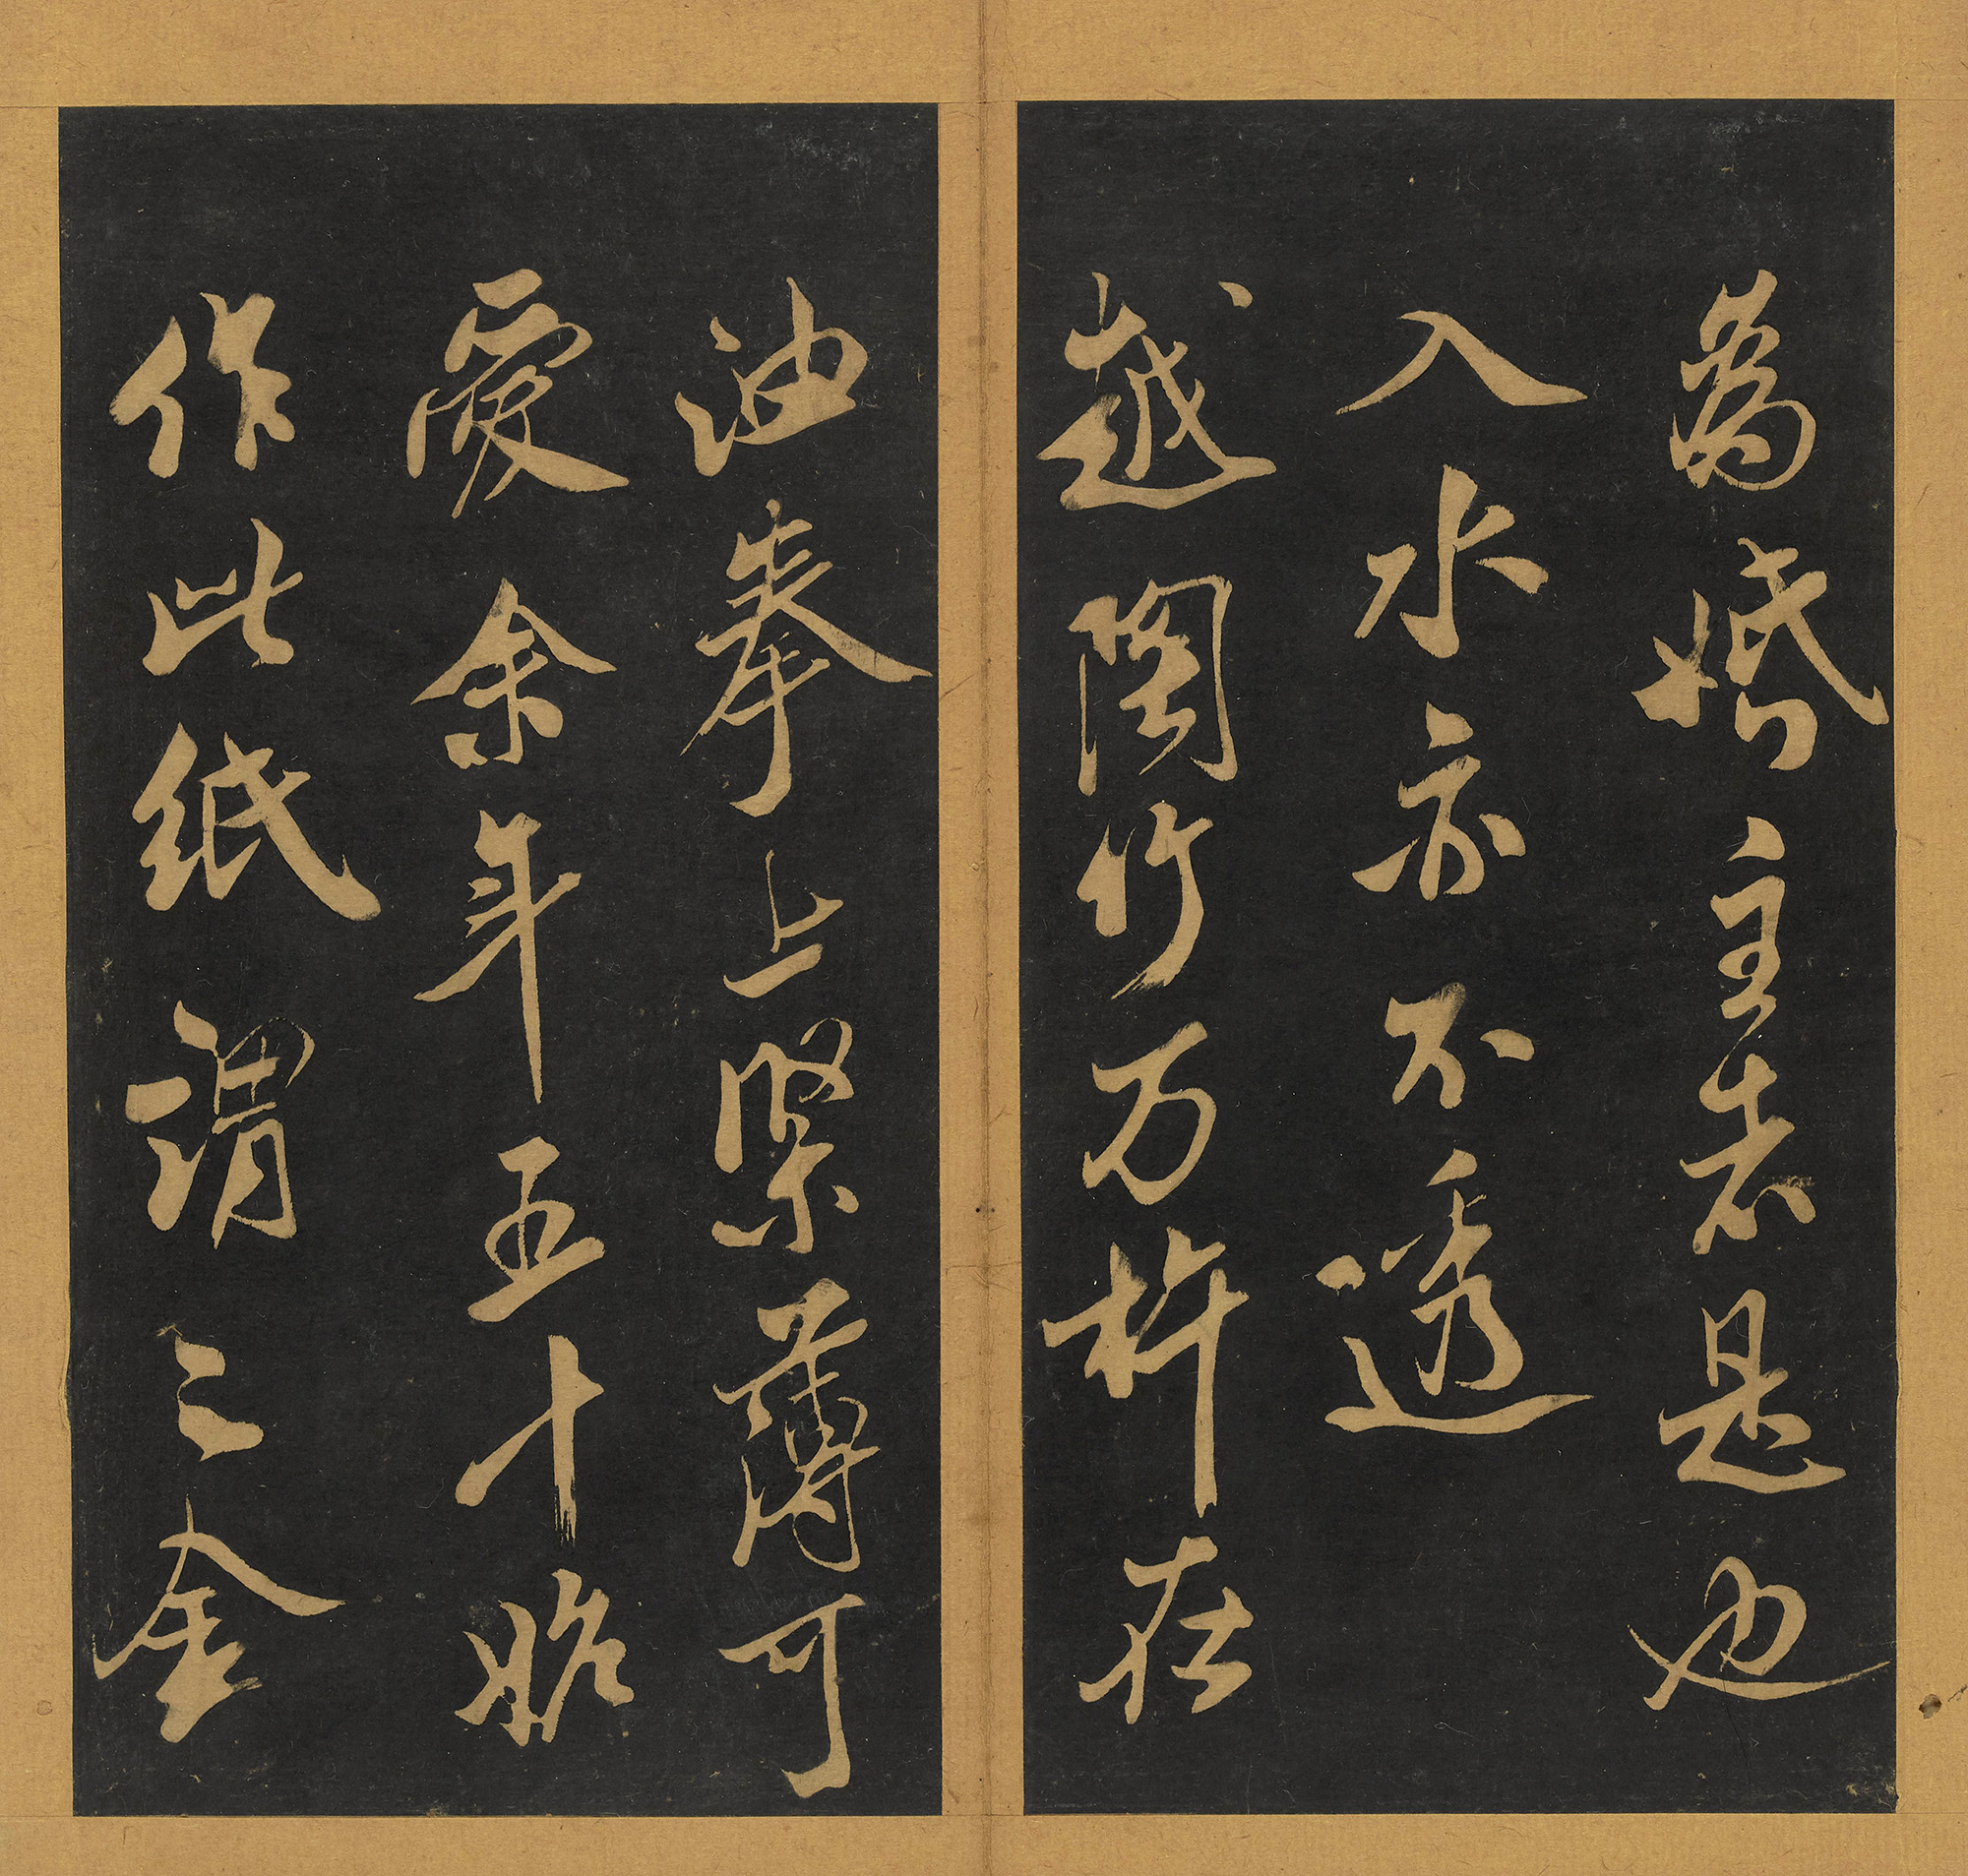 為婚主表是也
入水亦不透
越陶竹万杵在
油拳上緊薄可
愛余年五十始
作此紙謂之金